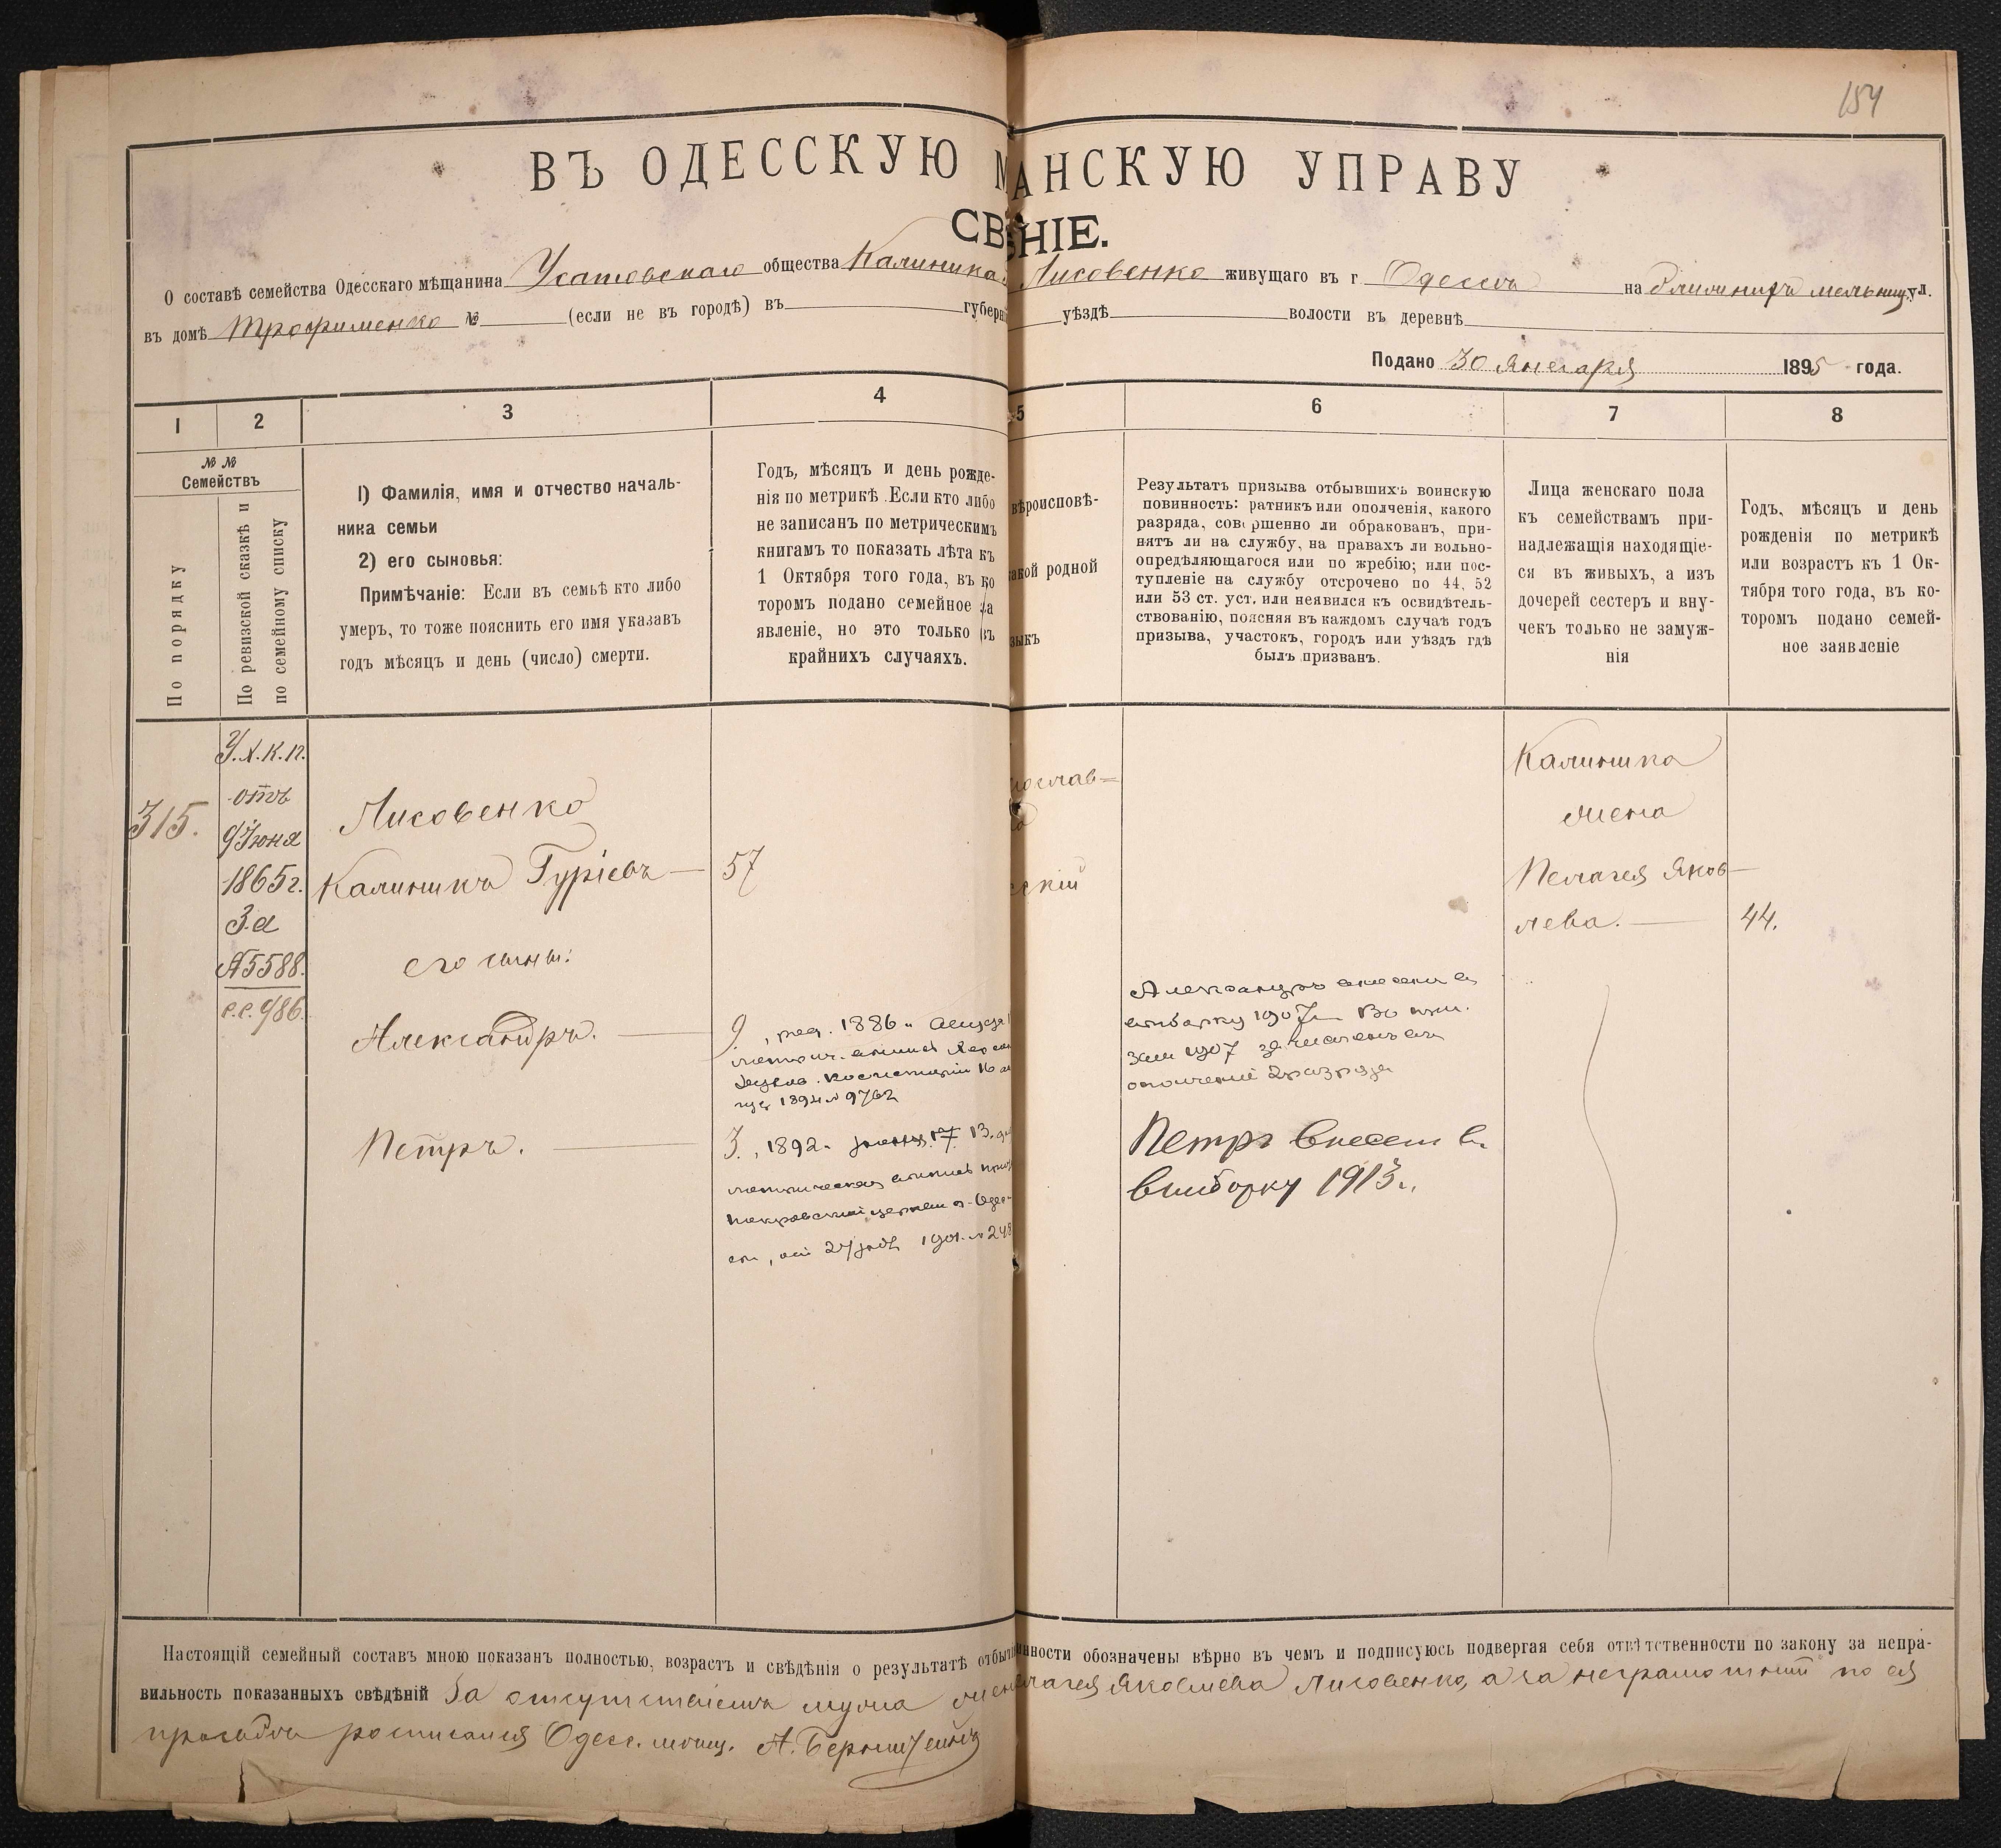 154
ВЪ ОДЕССКУЮ М АНСКУЮ УПРАВУ
СВ НІЕ.
О составѣ семейства Одесскаго мѣщанина Усатовскаго общества Калиника Лисовенко живущаго въ г. Одессѣ на ближнихъ мельниц. ул.
въ домѣ Трофименко № (если не въ городѣ) въ губерн уѣздѣ волости въ деревнѣ
Подано 30 Января 1895 года.
1 2 3 4 5 6 7 8
№ №
Семействъ
По порядку
По ревизской сказкѣ и
по семейному списку
1) Фамилія, имя и отчество началь-
ника семьи
2) его сыновья:
Примѣчаніе: Если въ семьѣ кто либо
умеръ, то тоже пояснить его имя указавъ
годъ мѣсяцъ и день (число) смерти.
Годъ, мѣсяцъ и день рожде-
нія по метрикѣ. Если кто либо
не записанъ по метрическимъ
книгамъ то показать лѣта къ
1 Октября того года, въ ко
торомъ подано семейное за
явленіе, но это только въ
крайнихъ случаяхъ.
вѣроисповѣ-
акой родной
зыкъ
Результатъ призыва отбывшихъ воинскую
повинность: ратникъ или ополченія, какого
разряда, совершенно ли обракованъ, при-
нятъ ли на службу, на правахъ ли вольно-
опредѣляющагося или по жребію; или пос-
тупленіе на службу отсрочено по 44, 52
или 53 ст. уст. или неявился къ освидѣтель-
ствованію, поясняя въ каждомъ случаѣ годъ
призыва, участокъ, городъ или уѣздъ гдѣ
былъ призванъ.
Лица женскаго пола
къ семействамъ при-
надлежащія находящіе-
ся въ живыхъ, а изъ
дочерей сестеръ и вну-
чекъ только не замуж-
нія
Годъ, мѣсяцъ и день
рожденія по метрикѣ
или возрастъ къ 1 Ок-
тября того года, въ ко-
торомъ подано семей-
ное заявленіе
315.
У.Х.К.П.
отъ
9 Іюня
1865 г.
За
№ 5588.
с.с. 986.
Лисовенко
Калиникъ Гуріевъ — 57
его сыны:
Александръ. — 9, род. 1886 г. Августа
Духов. Консисторіи 16
1894 № 9762
Петръ. — 3, 1892 г.
метрическая выпись
Покровской церкви г. Одес-
сы, отъ 24 1901 г. № 248
ослав=
сскій
Александръ внесенъ въ
выборку 1907 г. Во при-
зывъ 1907 зачисленъ въ
ополченіе 2 разряда
Петръ внесенъ въ
выборку 1913 г.
Калиника
жена
Пелагея Яков-
лева. — 44.
Настоящій семейный составъ мною показанъ полностью, возрастъ и свѣдѣнія о результатѣ отбыт инности обозначены вѣрно въ чемъ и подписуюсь подвергая себя отвѣтственности по закону за непра-
вильность показанныхъ свѣдѣній За отсутствіемъ мужа жен лагея Яковлева Лисовенко, а за неграмотной по ея
просьбѣ росписался Одесс. мѣщ. А. Бернштейнъ